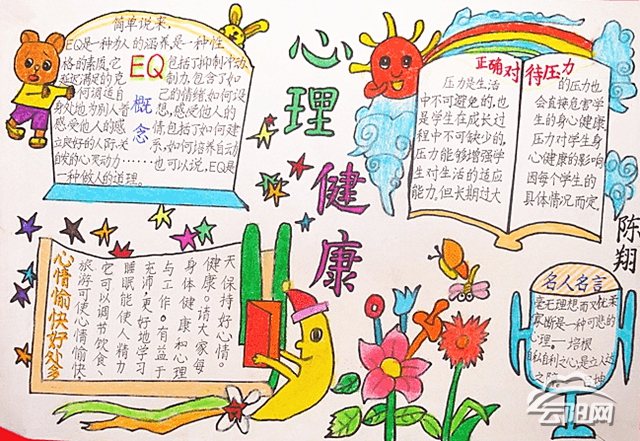 心理健康
简单说来,
EQ是一种为人的涵养,是一种性
格的素质,它
EQ
包括了抑制冲动
延迟满足的克
制力,包含了如
何调适自
己的情绪,如何设
身处地为别人着
想,感受他人的
感受他人的感
情,包括了如何建
立良好的人际关
系,如何培养自动
自发的心灵动力……
也可以说,EQ是
一种做人的道理。
概念
正确对待压力
压力是生活
中不可避免的,也
是学生在成长过
程中不可缺少的,
压力能够增强学
生对生活的适应
能力,但长期过大
的压力也
会直接危害学
生的身心健康,
压力对学生身
心健康的影响,
因每个学生的
具体情况而定。
陈翔
心情愉快好处多
天保持好心情。
健康。请大家每
身体健康和心理
与工作。有益于
充沛,更好地学习
睡眠能使人精力
它可以调节饮食、
旅游可使心情愉快、
名人名言
毫无理想而又优柔
寡断是一种可悲的
心理。—培根
自私自利之心,是立人达
云阳网